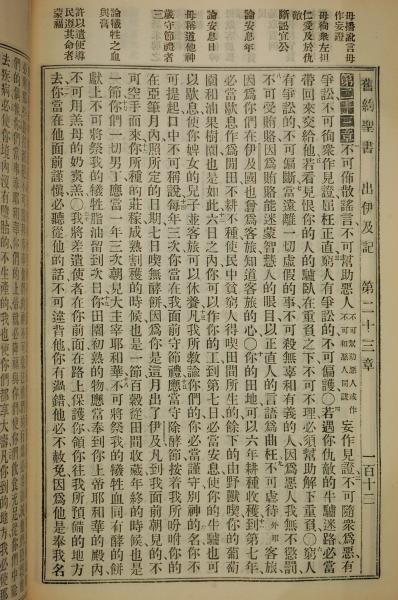 舊約聖書 出伊及記 第二十三章 一百十二
毋播訛言毋作妄證
毋徇衆左袒
仁愛及於仇敵
斷訟宜公
論安息年
論安息日
毋稱道他神
歲守節禮者三
論犧牲之血與膏
許以遣使導民遵其命者蒙福
第二十三章不可佈散謠言不可幫助惡人不可幫助惡人或作不可和惡人同謀妄作見證不可隨衆爲惡有
爭訟不可徇衆作見證屈枉正直窮人有爭訟的不可偏護○若遇你仇敵的牛驢迷路必當
帶回來交給他若看見恨你的人的驢臥在重負之下不可不理必須幫助解下重負○窮人
有爭訟的不可偏斷當遠離一切虛假的事不可殺無辜和有義的人因爲惡人我無不懲罰
不可受賄賂因爲賄賂能迷蒙智慧人的眼目以正直人的言語爲曲枉不可虐待外邦客旅
因爲你們在伊及國也曾爲客旅知道客旅的心○你的田地可以六年耕種收穫到第七年
必當歇息作爲閒田不耕不種使民中貧窮人得喫田間所生的餘下的由野獸喫你的葡萄
園和油果樹園也是如此六日之內你可以作你的工到第七日必當安息使你的牛驢也可
以歇息使你婢女的兒子並客旅可以休養凡我所教諭你們的你必當謹守別神的名你不
可提起口中不可稱說每年三次你當在我面前守節禮應當守除酵節接着我所吩咐你的
在亞筆月內照所定的日期七日喫無酵餅因爲你是這月出了伊及凡到我面前朝見的不
可空手而來你所種的莊稼成熟割穫的時候也是一節百穀從田間收藏年終的時候也是
一節你們一切男丁應當一年三次朝見大主宰耶和華不可將祭我的犧牲血同有酵的餅
獻上不可將祭我的犧牲脂油留到次日你田園初熟的物應當奉到你上帝耶和華的殿內
不可用羔母的奶煮羔○我將差遣使者在你前面在路上保護你領你往我所預備的地方
去你當在他面前謹愼必聽從他的話不可違背他你有過錯他必不赦免因爲他是奉我名